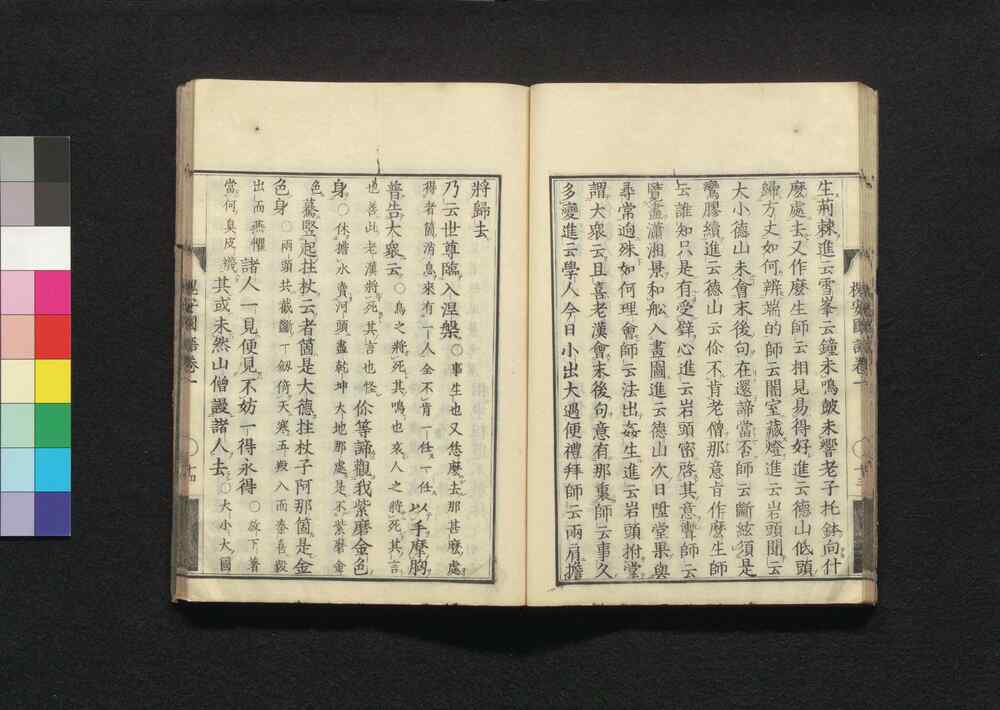 生荊棘進云雪峯云鐘未鳴皷未響老子托鉢向什
麽處去又作麽生師云相見易得好進云德山低頭
歸方丈如何辨端的師云闇室藏燈進云岩頭聞云
大小德山未會末後句在還諦當否師云斷絃須是
鸞膠續進云德山云你不肯老僧那意旨作麽生師
云誰知只是有受璧心進云岩頭密啓其意聻師云
覽盡瀟湘景和船入畫圖進云德山次日陞堂果與
尋常逈殊如何理會師云法出姦生進云岩頭拊掌
謂大衆云且喜老漢會末後句意有那裏師云事久
多變進云學人今日小出大遇便禮拜師云兩肩擔
槐安國語卷一
〇 十三
將歸去
乃云世尊臨入涅槃〇事生也又恁麽去那甚麽處
得者箇消息來有一人全不肯一任一任以手摩胸
普告大衆云〇鳥之將死其鳴也哀人之將死其言
也善此老漢將死其言也怪你等諦觀我紫磨金色
身〇休擔水賣河頭盡乾坤大地那處是不紫磨金
色驀竪起拄杖云者箇是大德拄杖子阿那箇是金
色身〇兩頭共截斷一劔倚天寒五殿入而泰邑殿
出而燕懼諸人一見便見不妨一得永得〇放下著
當何臭皮襪其或未然山僧謾諸人去〇大小大國
槐安國語卷一
〇 十四